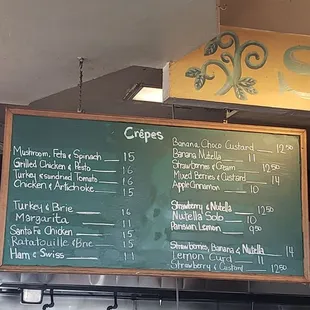 Crêpes
Mushroom, Feta & Spinach 15
Grilled Chicken & Pesto 16
Turkey & sundried Tomato 16
Chicken & Artichoke 15
Turkey & Brie 16
Margarita 11
Santa Fe Chicken 15
Ratatouille & Brie 15
Ham & Swiss 11
Banana Choco Custard 12.50
Banana Nutella 11
Strawberries & Cream 12.50
Mixed Berries & Custard 14
Apple Cinnamon 10
Strawberry & Nutella 12.50
Nutella Solo 10
Parisian Lemon 9.50
Strawberries, Banana & Nutella 14
Lemon Curd 11
Strawberry & Custard 12.50